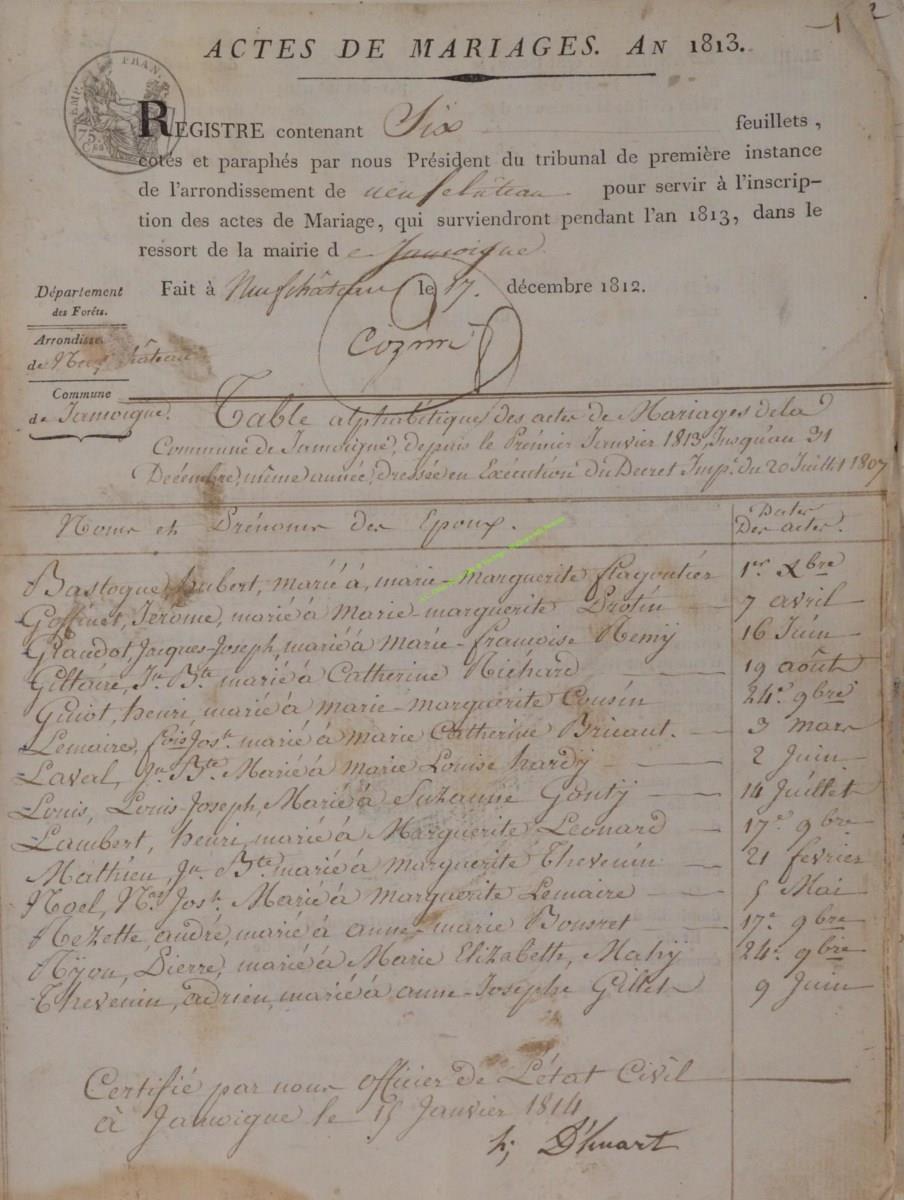 1 2
ACTES DE MARIAGES. AN 1813.
REGISTRE contenant Six feuillets,
cotés et paraphés par nous Président du tribunal de première instance
de l'arrondissement de neufchâteau pour servir à l'inscrip-
tion des actes de Mariage, qui surviendront pendant l'an 1813, dans le
ressort de la mairie de Jamoigne
Fait à Neufchâteau le 17. décembre 1812.
Département
des Forêts.
Arrondisse.
de Neufchâteau
Commune
de Jamoigne.
Table alphabétique des actes de Mariages de la
Commune de Jamoigne, depuis le Premier Janvier 1813, Jusqu'au 31
Décembre, même année, dressée en Exécution du Decret Imp. du 20 Juillet 1807
Noms et Prénoms des Epoux. Dates
Des actes.
Bastogne, hubert, marié à, marie-marguerite 1er Xbre
Goffinet, Jérôme, marié à Marie-marguerite Protin 7 avril
Jacques-Joseph, marié à Marie-francoise Remy 16 Juin
Jn Bte marié à Catherine Richard 19 août
Guiot, henri, marié à marie-marguerite Cousin 24e 9bre
Lemaire, fois Josh. marié à marie Catherine Bricaut. 3 mars
Laval, Jn Bte. Marié à marie Louise hardÿ 2 Juin
Louis, Louis-Joseph, Marié à Suzanne Gontÿ 14 Juillet
Lambert, henri, marié à Marguerite Leonard 17e 9bre
Mathieu, Jn. Bte. marié à marguerite Thevenin 21 fevrier
Noel, Nas Josh. Marié à marguerite Lemaire 5 Mai
Rezette, andré, marié à anne-marie 17e 9bre
Pierre, marié à Marie Elizabeth, Mahÿ 24e 9bre
Thevenin, adrien, marié à anne-Josephe Gillet 9 Juin
Certifié par nous officier de L'état Civil
à Jamoigne le 15 Janvier 1814
h; D'huart